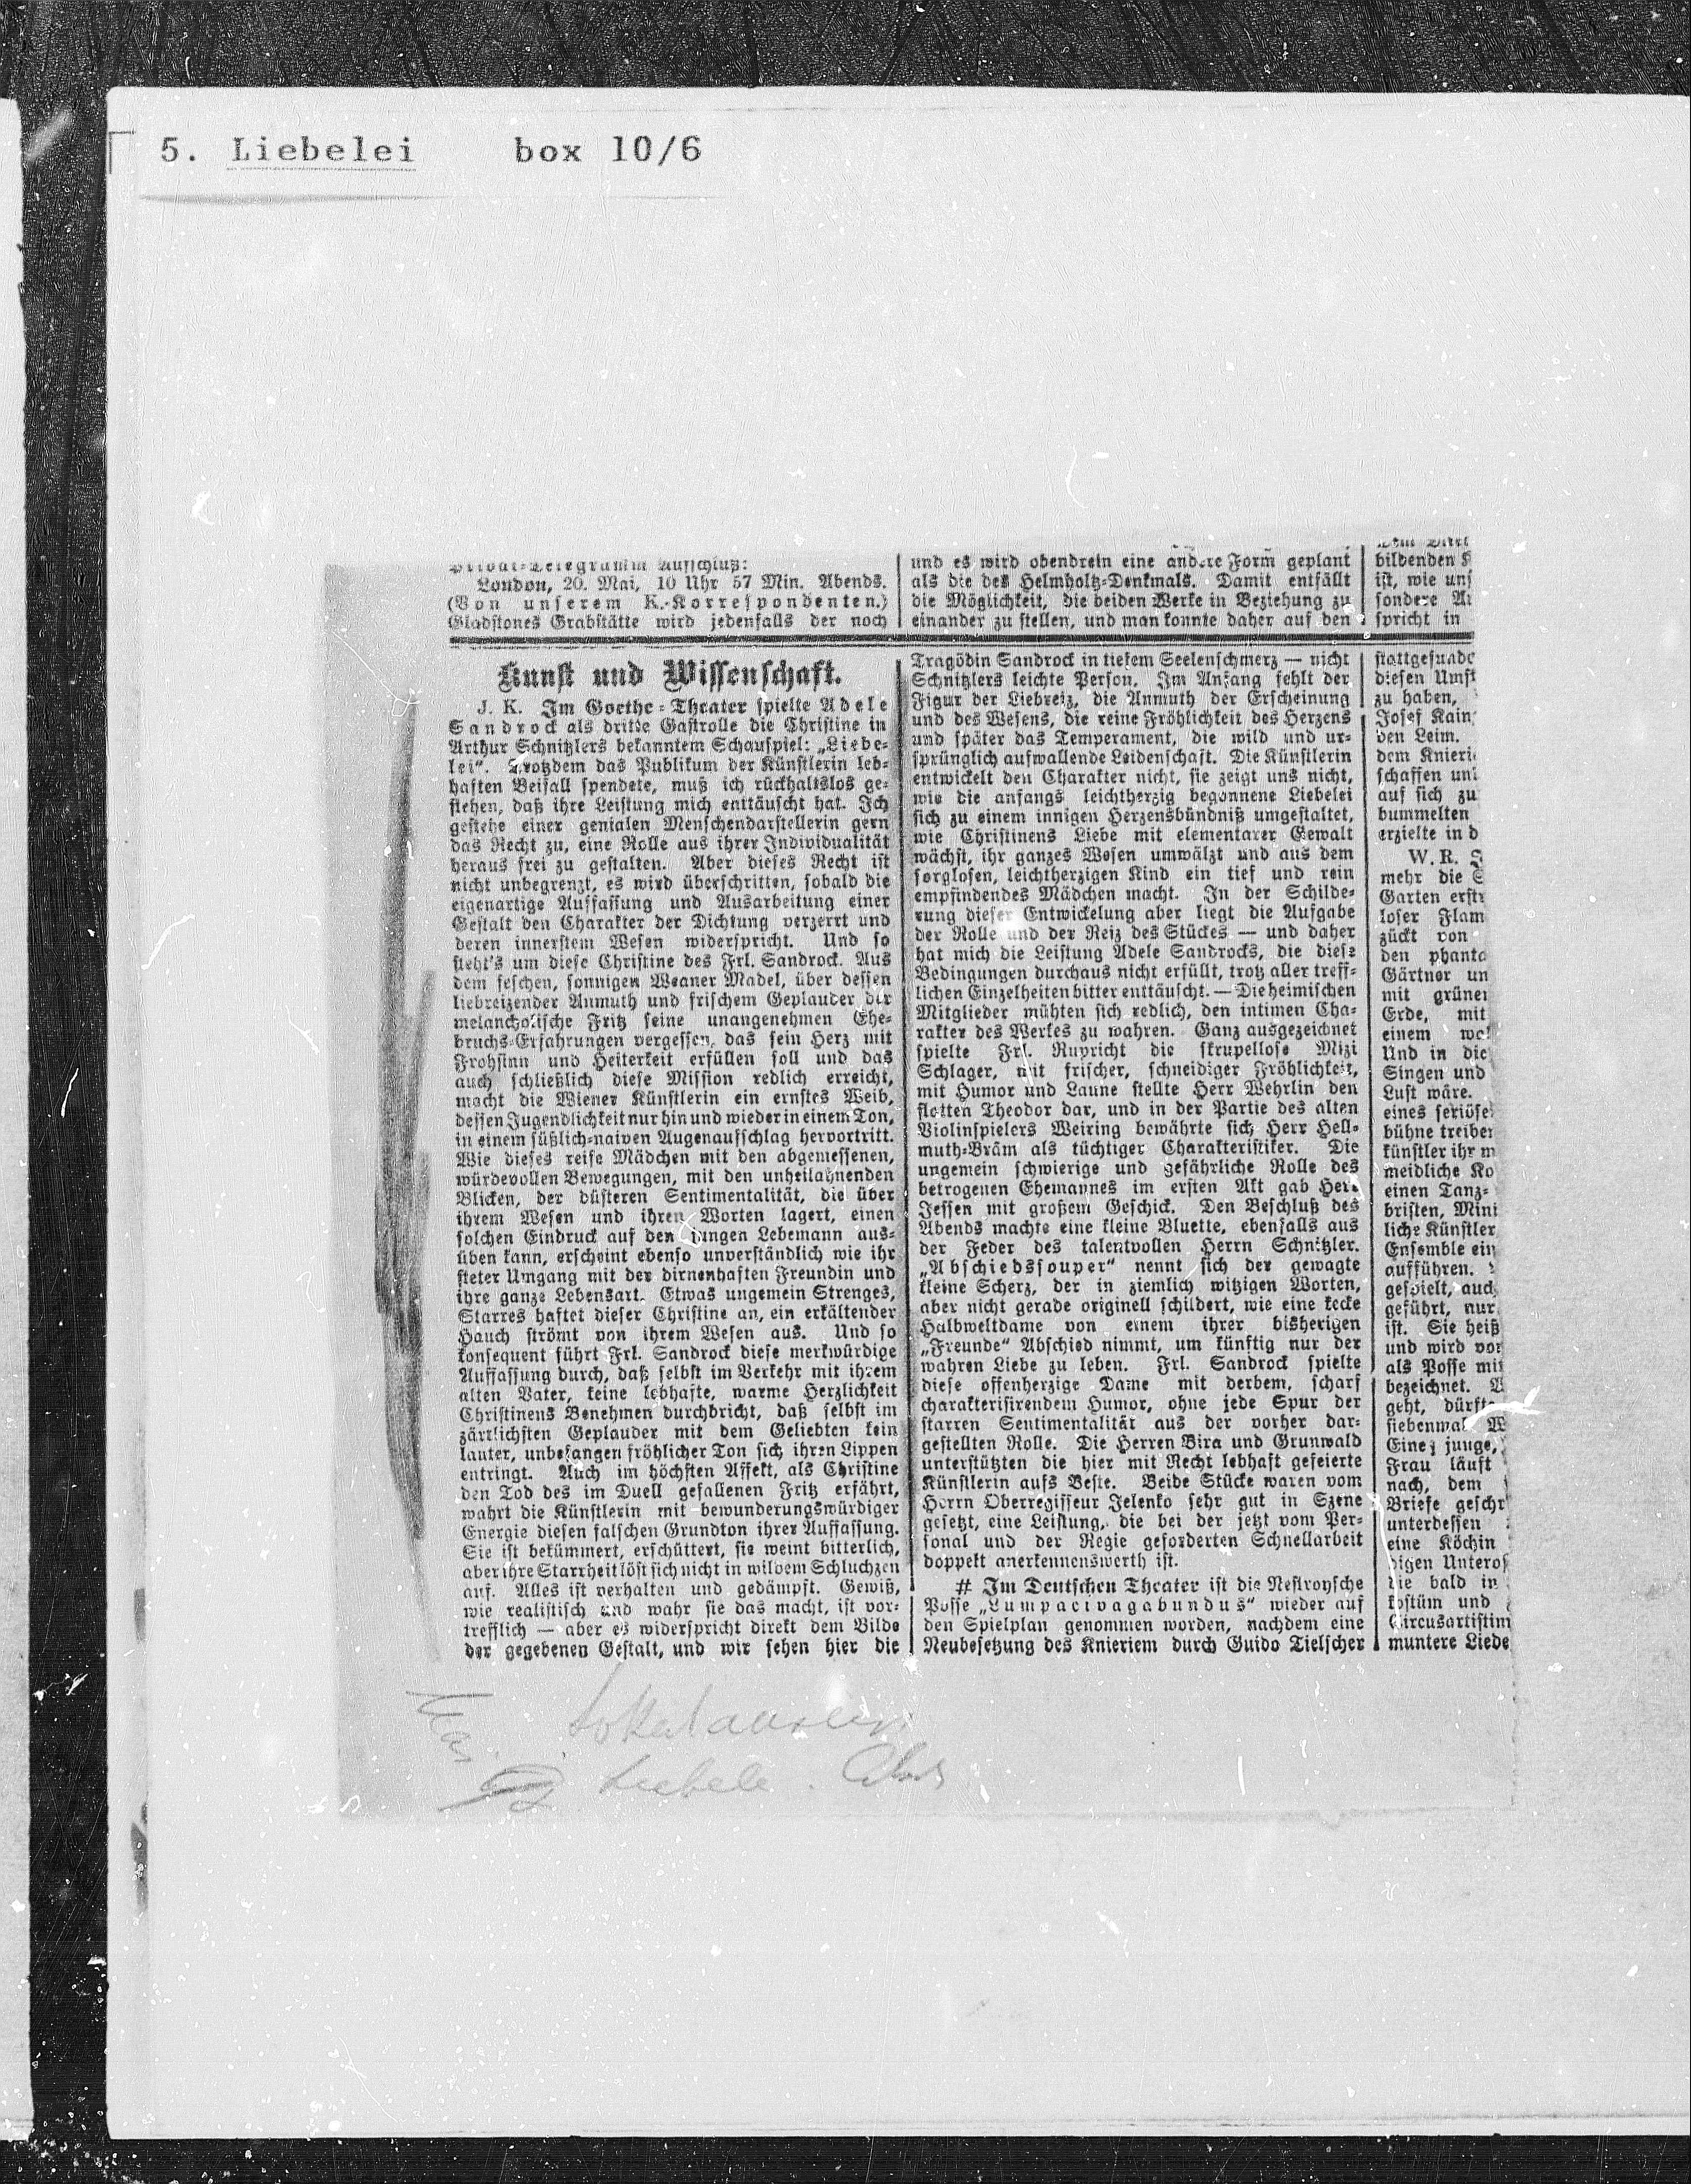 5. Liebelei box 10/6
Privat-Telegramm Aufschluß:
London, 20. Mai, 10 Uhr 57 Min. Abends.
(Von unserem K.-Korrespondenten.)
Gladstones Grabstätte wird jedenfalls der noch
Kunst und Wissenschaft.
J. K. Im Goethe-Theater spielte Adele
Sandrock als dritte Gastrolle die Christine in
Arthur Schnitzlers bekanntem Schauspiel: „Liebe-
lei“. Trotzdem das Publikum der Künstlerin leb-
haften Beifall spendete, muß ich rückhaltslos ge-
stehen, daß ihre Leistung mich enttäuscht hat. Ich
gestehe einer genialen Menschendarstellerin gern
das Recht zu, eine Rolle aus ihrer Individualität
heraus frei zu gestalten. Aber dieses Recht ist
nicht unbegrenzt, es wird überschritten, sobald die
eigenartige Auffassung und Ausarbeitung einer
Gestalt den Charakter der Dichtung verzerrt und
deren innerstem Wesen widerspricht. Und so
steht's um diese Christine des Frl. Sandrock. Aus
dem feschen, sonnigen Weaner Madel, über dessen
liebreizender Anmuth und frischem Geplauder der
melancholische Fritz seine unangenehmen Ehe-
bruchs-Erfahrungen vergessen, das sein Herz mit
Frohsinn und Heiterkeit erfüllen soll und das
auch schließlich diese Mission redlich erreicht,
macht die Wiener Künstlerin ein ernstes Weib,
dessen Jugendlichkeit nur hin und wieder in einem Ton,
in einem süßlich-naiven Augenaufschlag hervortritt.
Wie dieses reife Mädchen mit den abgemessenen,
würdevollen Bewegungen, mit den unheilahnenden
Blicken, der düsteren Sentimentalität, die über
ihrem Wesen und ihren Worten lagert, einen
solchen Eindruck auf den jungen Lebemann aus-
üben kann, erscheint ebenso unverständlich wie ihr
steter Umgang mit der dirnenhaften Freundin und
ihre ganze Lebensart. Etwas ungemein Strenges,
Starres haftet dieser Christine an, ein erkältender
Hauch strömt von ihrem Wesen aus. Und so
konsequent führt Frl. Sandrock diese merkwürdige
Auffassung durch, daß selbst im Verkehr mit ihrem
alten Vater, keine lebhafte, warme Herzlichkeit
Christinens Benehmen durchbricht, daß selbst im
zärtlichsten Geplauder mit dem Geliebten kein
lauter, unbefangen fröhlicher Ton sich ihren Lippen
entringt. Auch im höchsten Affekt, als Christine
den Tod des im Duell gefallenen Fritz erfährt,
wahrt die Künstlerin mit bewunderungswürdiger
Energie diesen falschen Grundton ihrer Auffassung.
Sie ist bekümmert, erschüttert, sie weint bitterlich,
aber ihre Starrheit löst sich nicht in wildem Schluchzen
auf. Alles ist verhalten und gedämpft. Gewiß,
wie realistisch und wahr sie das macht, ist vor-
trefflich — aber es widerspricht direkt dem Bilde
der gegebenen Gestalt, und wir sehen hier die
und es wird obendrein eine andere Form geplant
als die des Helmholtz-Denkmals. Damit entfällt
die Möglichkeit, die beiden Werke in Beziehung zu
einander zu stellen, und man konnte daher auf den
Tragödin Sandrock in tiefem Seelenschmerz — nicht
Schnitzlers leichte Person. Im Anfang fehlt der
Figur der Liebreiz, die Anmuth der Erscheinung
und des Wesens, die reine Fröhlichkeit des Herzens
und später das Temperament, die wild und ur-
sprünglich aufwallende Leidenschaft. Die Künstlerin
entwickelt den Charakter nicht, sie zeigt uns nicht,
wie die anfangs leichtherzig begonnene Liebelei
sich zu einem innigen Herzensbündniß umgestaltet,
wie Christinens Liebe mit elementarer Gewalt
wächst, ihr ganzes Wesen umwälzt und aus dem
sorglosen, leichtherzigen Kind ein tief und rein
empfindendes Mädchen macht. In der Schilde-
rung dieser Entwickelung aber liegt die Aufgabe
der Rolle und der Reiz des Stückes — und daher
hat mich die Leistung Adele Sandrocks, die diese
Bedingungen durchaus nicht erfüllt, trotz aller treff-
lichen Einzelheiten bitter enttäuscht. — Die heimischen
Mitglieder mühten sich redlich, den intimen Cha-
rakter des Werkes zu wahren. Ganz ausgezeichnet
spielte Frl. Rupricht die skrupellose Mizi
Schlager, mit frischer, schneidiger Fröhlichkeit,
mit Humor und Laune stellte Herr Wehrlin den
flotten Theodor dar, und in der Partie des alten
Violinspielers Weiring bewährte sich Herr Hell-
muth-Bräm als tüchtiger Charakteristiker. Die
ungemein schwierige und gefährliche Rolle des
betrogenen Ehemannes im ersten Akt gab Herr
Jessen mit großem Geschick. Den Beschluß des
Abends machte eine kleine Bluette, ebenfalls aus
der Feder des talentvollen Herrn Schnitzler.
„Abschiedssouper“ nennt sich der gewagte
kleine Scherz, der in ziemlich witzigen Worten,
aber nicht gerade originell schildert, wie eine kecke
Halbweltdame von einem ihrer bisherigen
„Freunde“ Abschied nimmt, um künftig nur der
wahren Liebe zu leben. Frl. Sandrock spielte
diese offenherzige Dame mit derbem, scharf
charakterisirendem Humor, ohne jede Spur der
starren Sentimentalität aus der vorher dar-
gestellten Rolle. Die Herren Bira und Grunwald
unterstützten die hier mit Recht lebhaft gefeierte
Künstlerin aufs Beste. Beide Stücke waren vom
Herrn Oberregisseur Jelenko sehr gut in Szene
gesetzt, eine Leistung, die bei der jetzt vom Per-
sonal und der Regie geforderten Schnellarbeit
doppelt anerkennenswerth ist.
# Im Deutschen Theater ist die Nestroysche
Posse „Lumpacivagabundus“ wieder auf
den Spielplan genommen worden, nachdem eine
Neubesetzung des Knieriem durch Guido Tielscher
bildenden
ist, wie uns
sondere
spricht in
stattgefunde
diesen Umst
zu haben,
Josef Kain
den Leim.
dem Knieri
schaffen un
auf sich zu
bummelten
erzielte in d
W. R.
mehr die
Garten erst
loser Flam
zückt von
den phanta
Gärtner un
mit grüner
Erde, mit
einem
Und in die
Singen und
Lust wäre.
eines seriöse
bühne treiben
künstler ihr
meidliche Ko
einen Tanz-
bristen, Mini
liche Künstler
Ensemble ein
aufführen.
gespielt, auch
geführt, nur
ist. Sie heiß
und wird vor
als Posse mit
bezeichnet.
geht, dürft
siebenmal
Eine junge,
Frau läuft
nach, dem
Briefe geschr
unterdessen
eine Köchin
digen Unterof
die bald in
kostüm und
Circusartistin
muntere Liede
Mai
Lokalanzeiger
Liebele